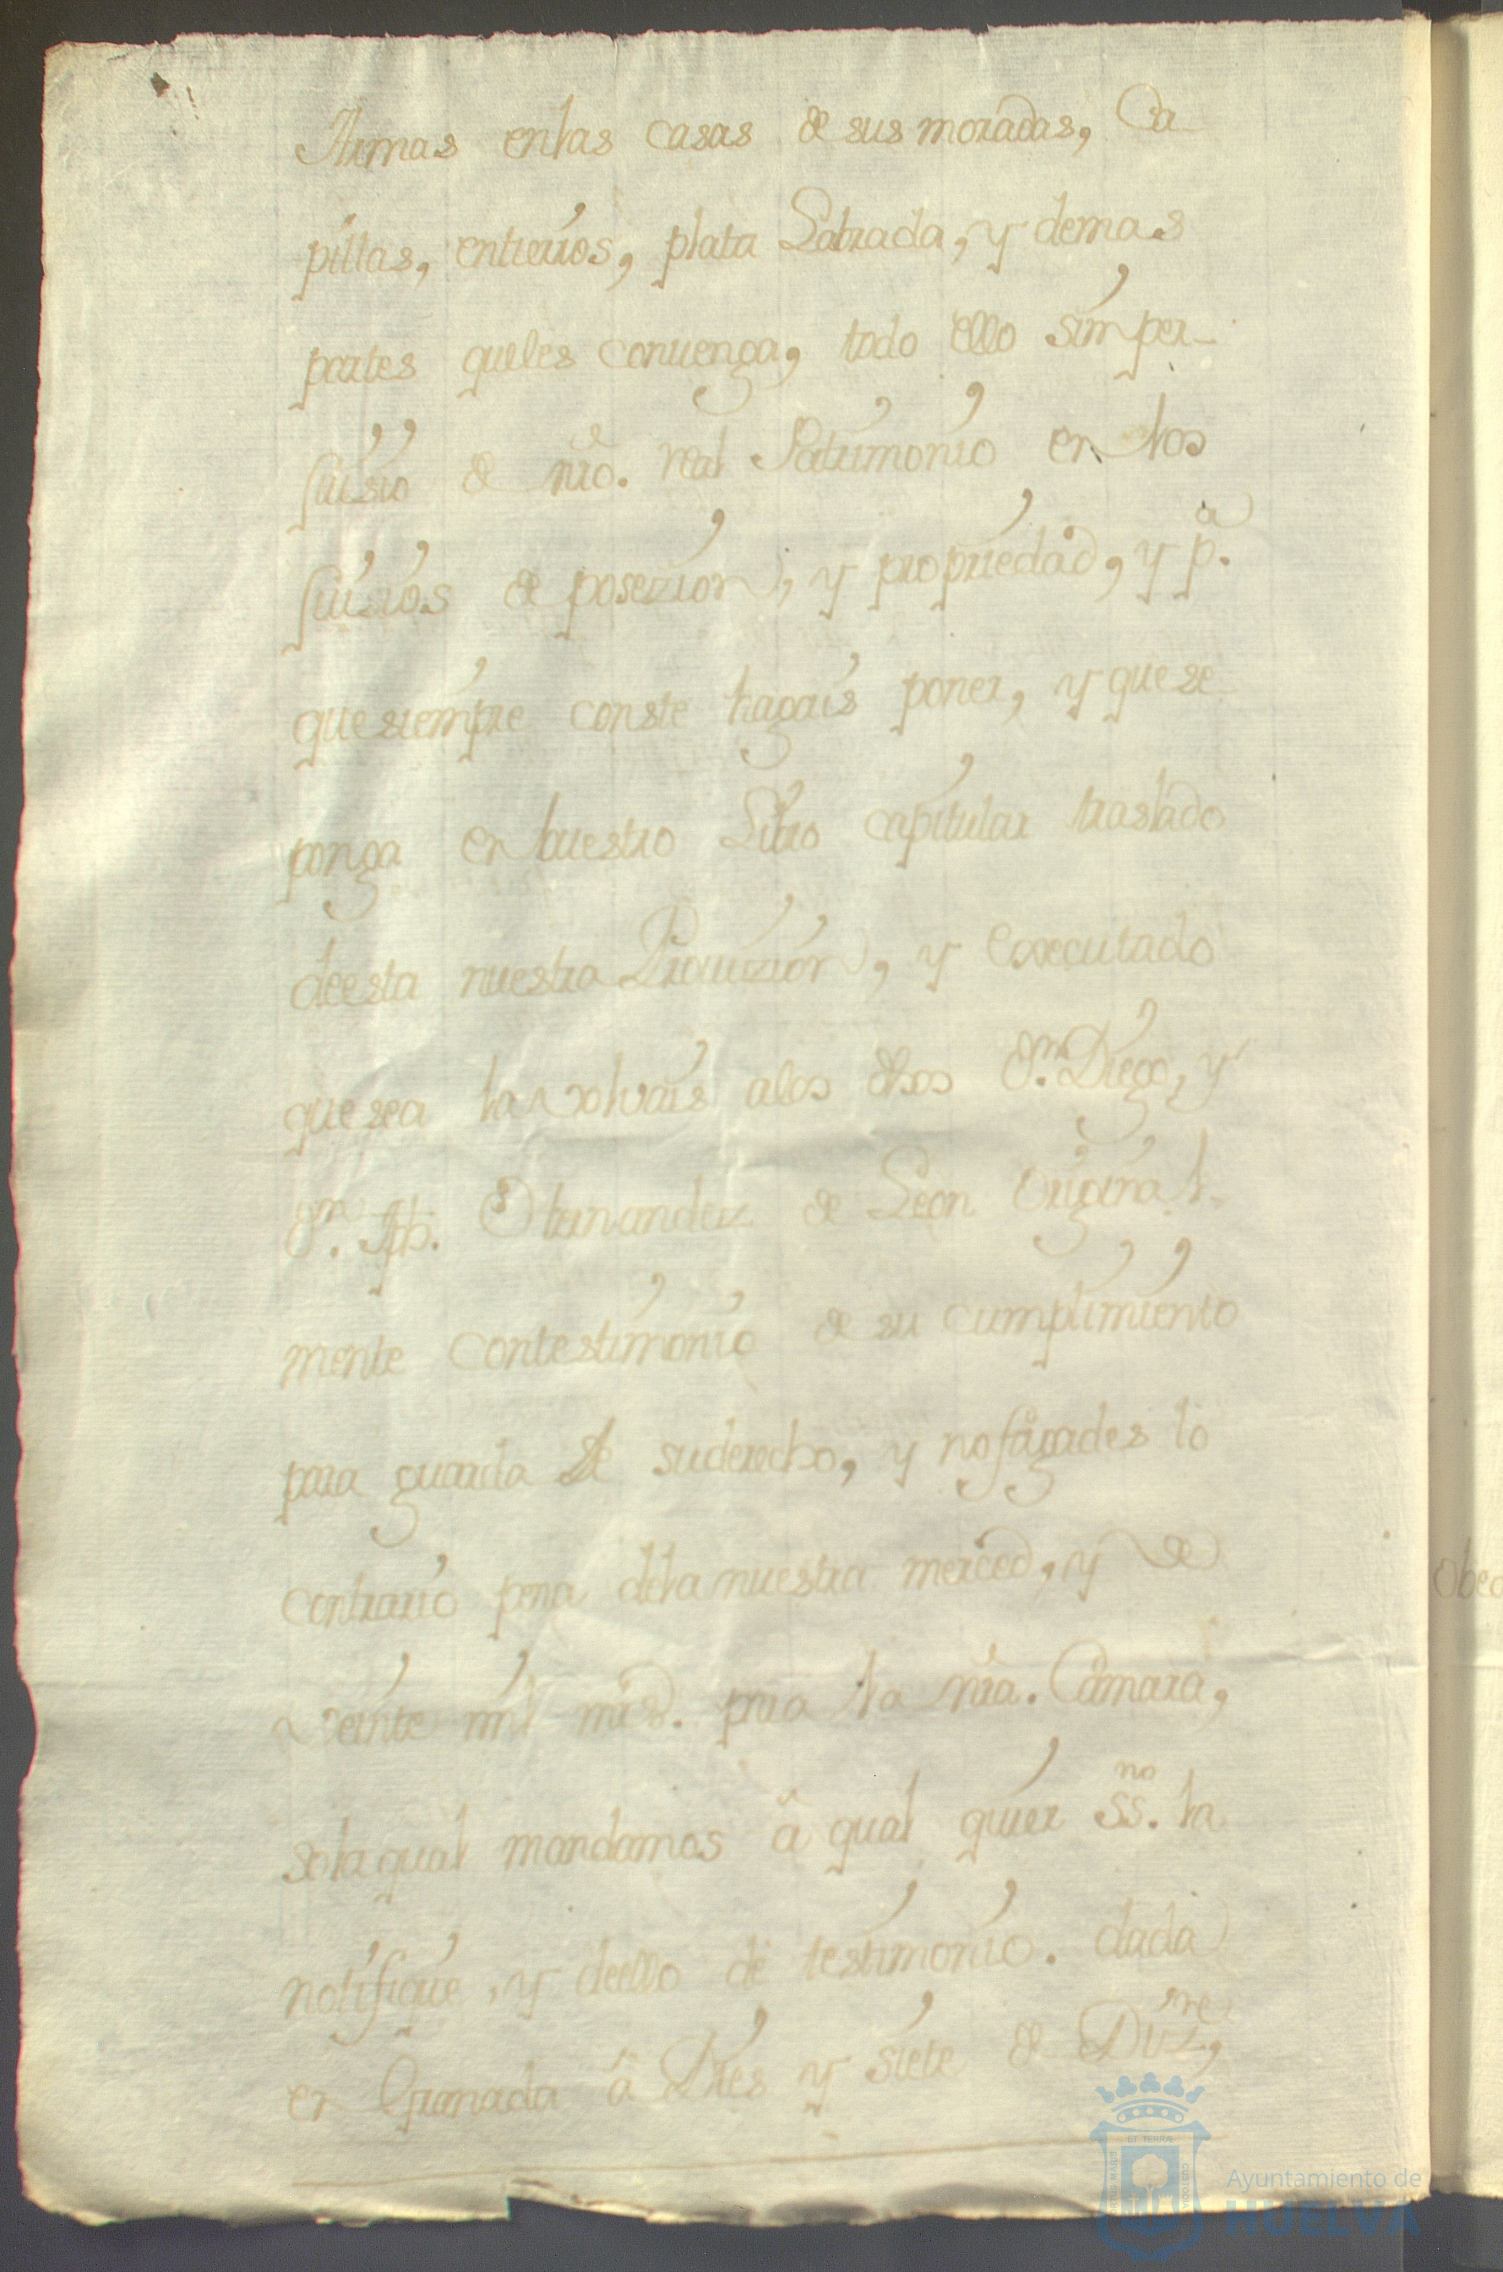 Armas enlas casas de sus moradas, Ca-
pillas, entierros, plata Labrada, y demas
partes queles convenga, todo ello sin per-
juisio de nro. real Patrimonio en los
juizios de posezion, y propriedad, y pa.
que siempre conste hagais poner, y que se
ponga en buestro Libro capitular traslado
deesta nuestra Provizion, y executado
que sea la volvais alos dhos Dn. Diego, y
Dn. Hernandez de Leon original-
mente contestimonio de su cumplimiento
para guarda de suderecho, y nofagades lo
contrario pena dela nuestra merced, y de
Veinte mil mrs. para la nra. Camara,
sola qual mandamos â qual quier ssno. la
notifique, y deello dê testimonio. dada
en Granada â Dies y siete de Dizre,
Obed
ET TERRÆ
Ayuntamiento de
HUELVA